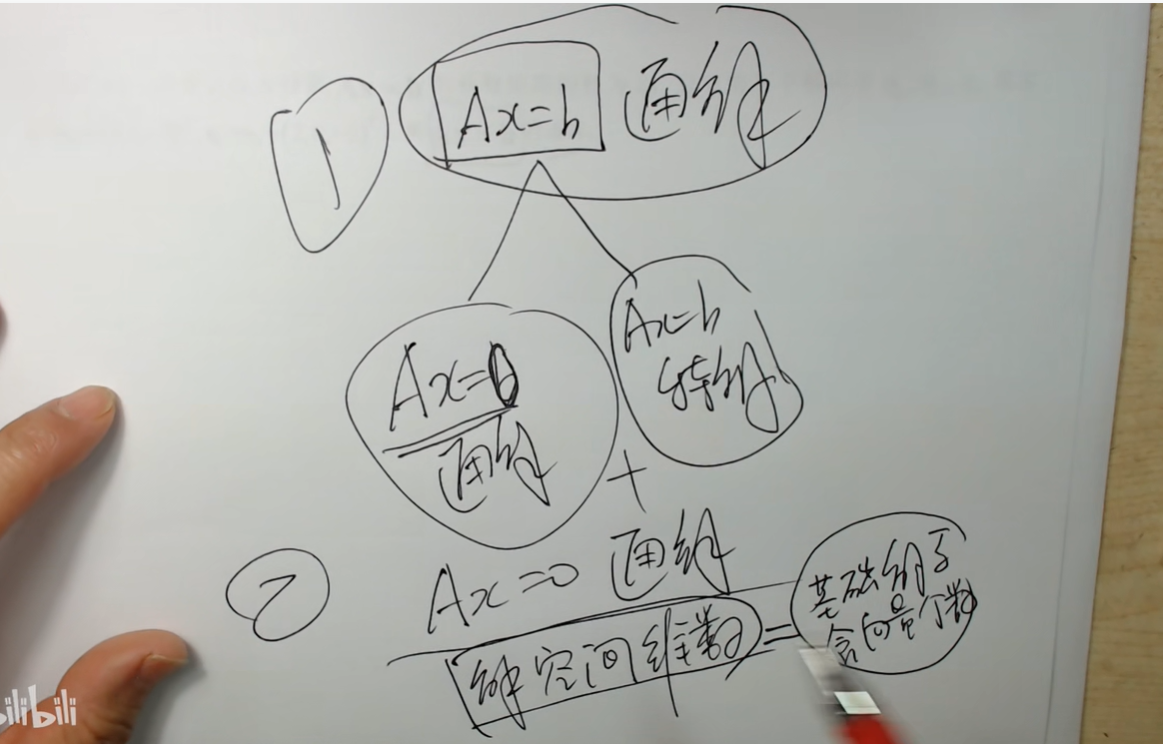 ① Ax=b 通解
Ax=0
通解
+
Ax=b
特解
② Ax=0 通解
解空间维数 = 基础解系
含向量个数
bilibili